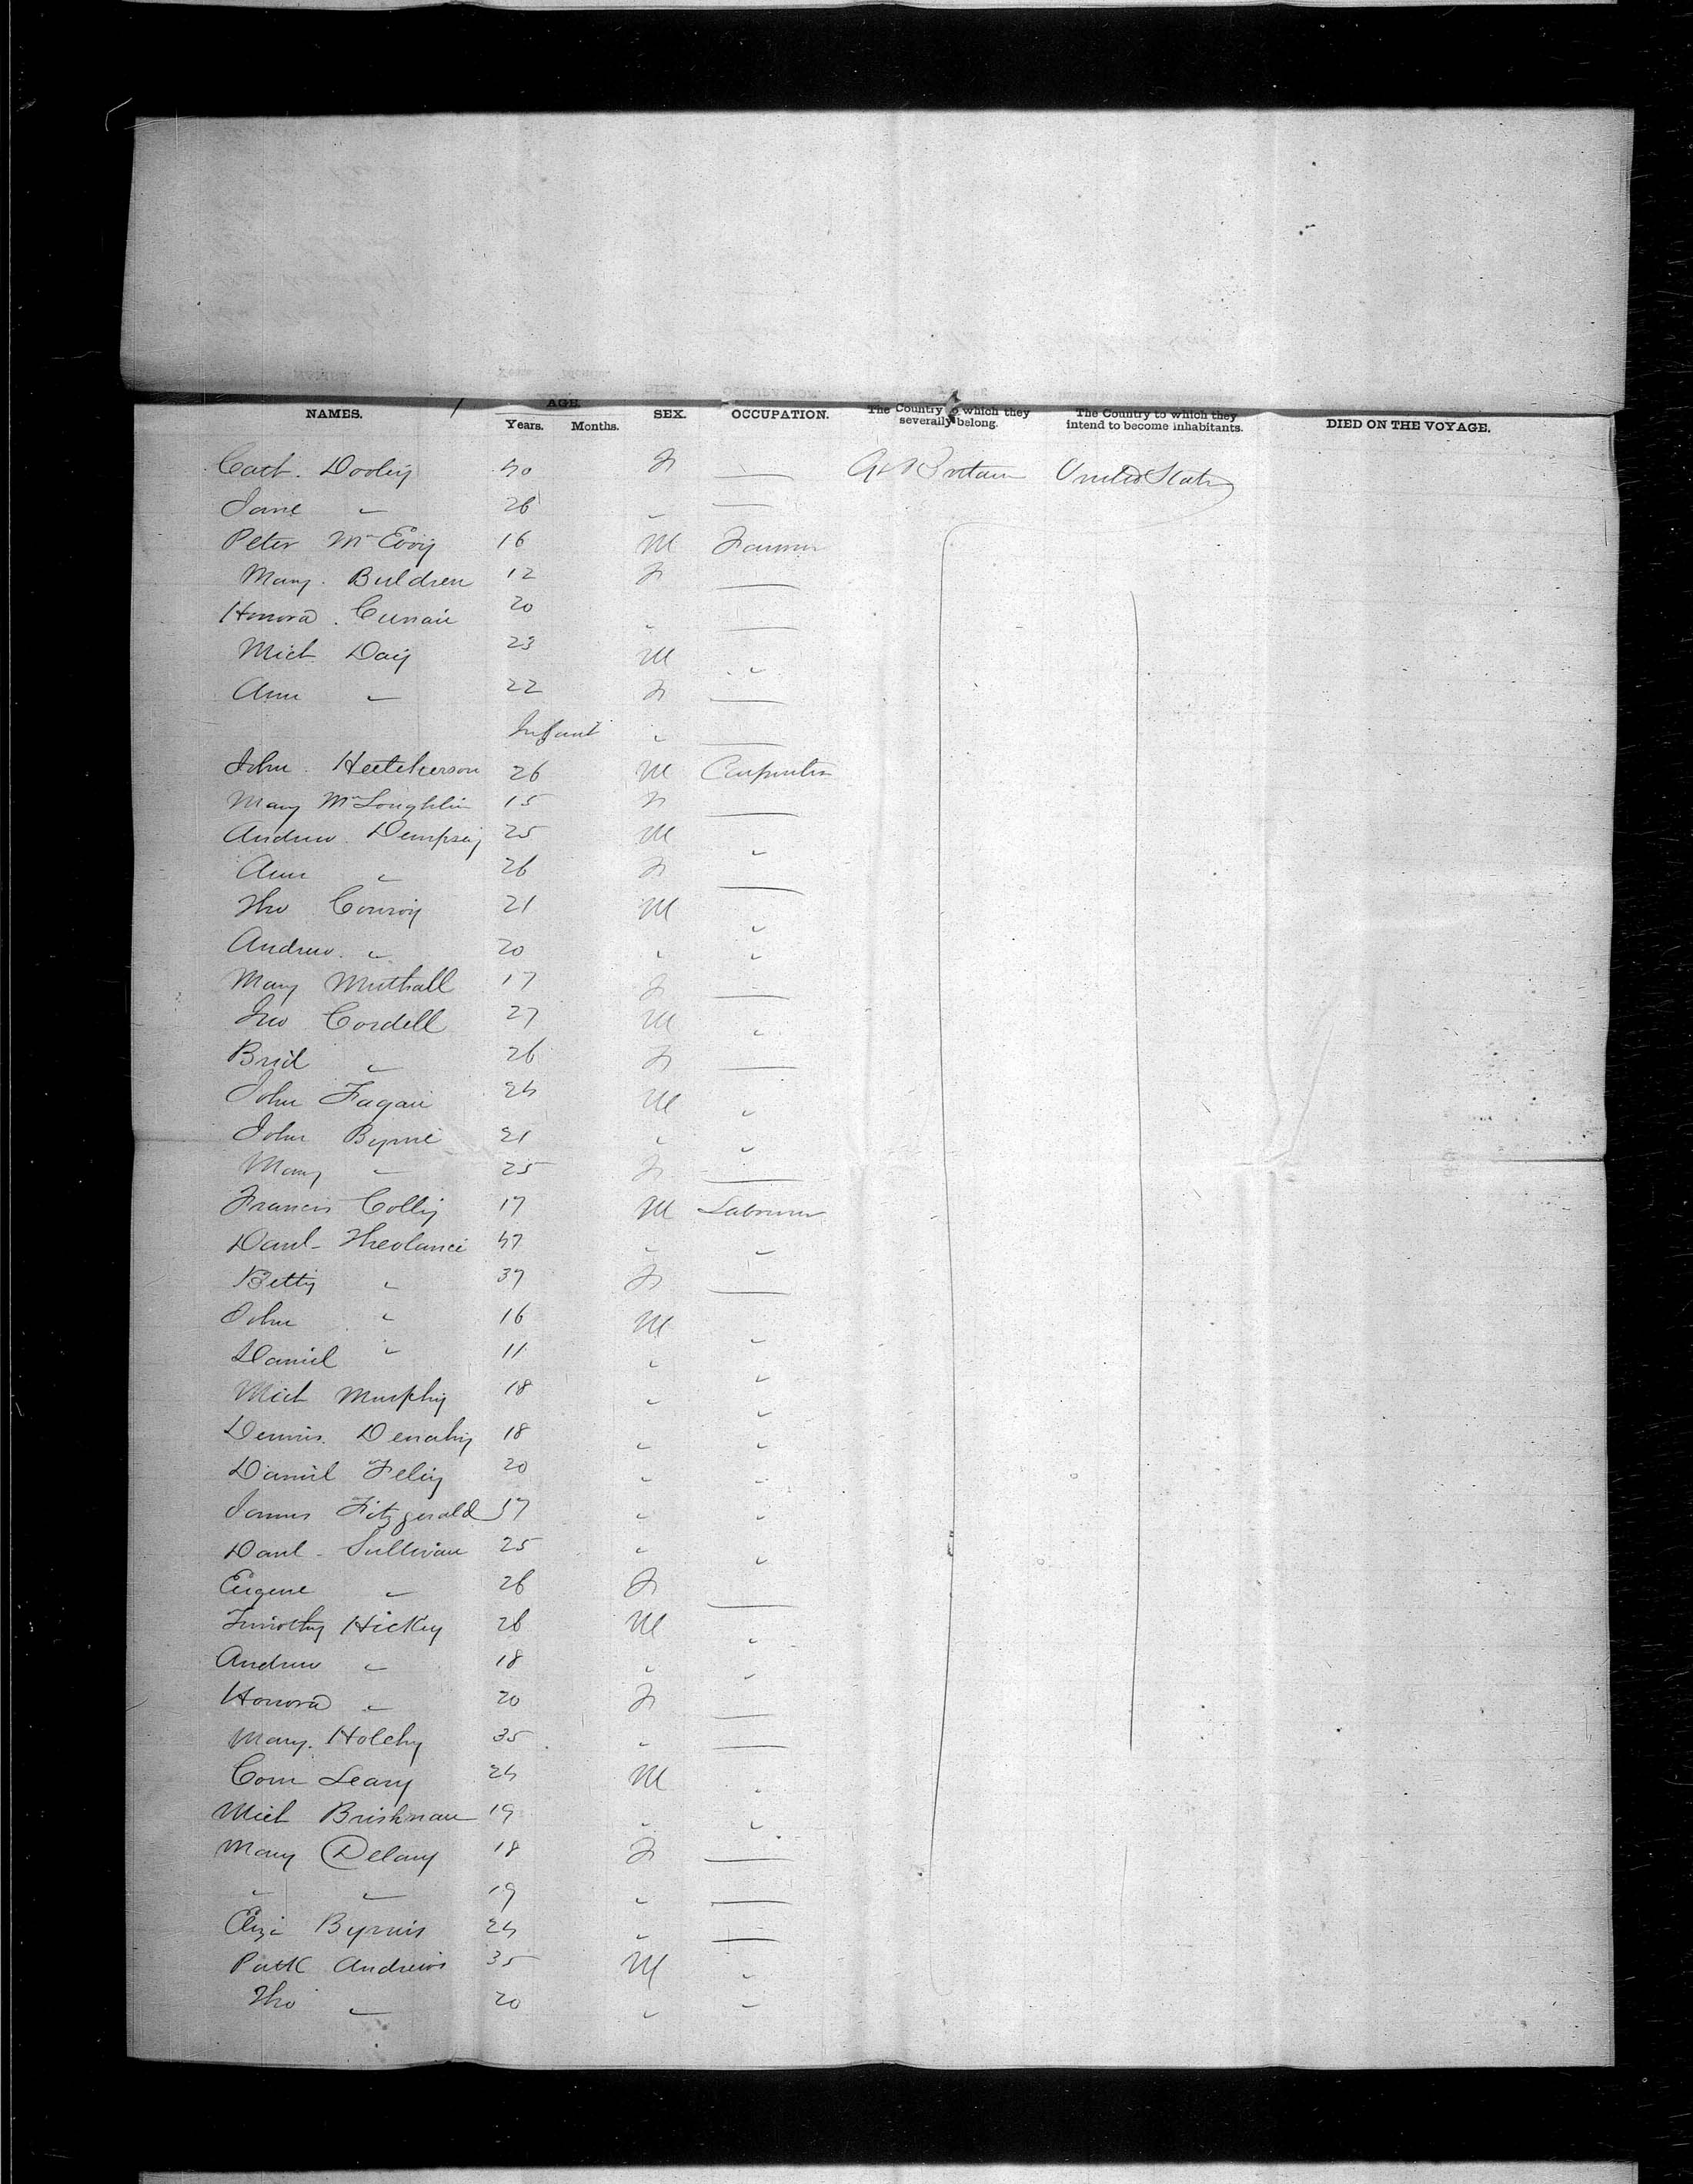 NAMES. AGE. Years. Months. SEX. OCCUPATION. The Country to which they severally belong. The Country to which they intend to become inhabitants. DIED ON THE VOYAGE.
Cath. Dooley 50 F — Gt Britain United States
Jane " 26 " —
Peter McEvoy 16 M Farmer
Mary. Buldren 12 F —
Honora. 20 " —
Mich Day 23 M "
Ann " 22 F —
Infant " —
John. Hutcherson 26 M Carpenter
Mary McLoughlin 15 F —
Andrew. Dempsey 25 M "
Ann " 26 F —
Tho Conroy 21 M "
Andrew. " 20 " "
Mary Muthall 17 F —
Jno Cordell 27 M "
Brid " 26 F —
John Fagan 24 M "
John Byrne 21 " "
Mary " 25 F —
Francis Colly 17 M Labourer
Danl 47 " "
Betty " 37 F —
John " 16 M "
Daniel " 11 " "
Mich Murphy 18 " "
Dennis. Denahy 18 " "
Daniel 20 " "
James Fitzgerald 57 " "
Danl - Sullivan 25 " "
Eugene " 26 F —
Timothy Hickey 26 M "
Andrew " 18 " "
Honora " 20 F —
Mary. 35 " —
Corn Leary 24 M "
Mich Brishnan 19 " "
Mary Delany 18 F —
" " 19 " —
Eliza Byrnes 24 " —
Patk Andrews 35 M "
Tho " 20 " "